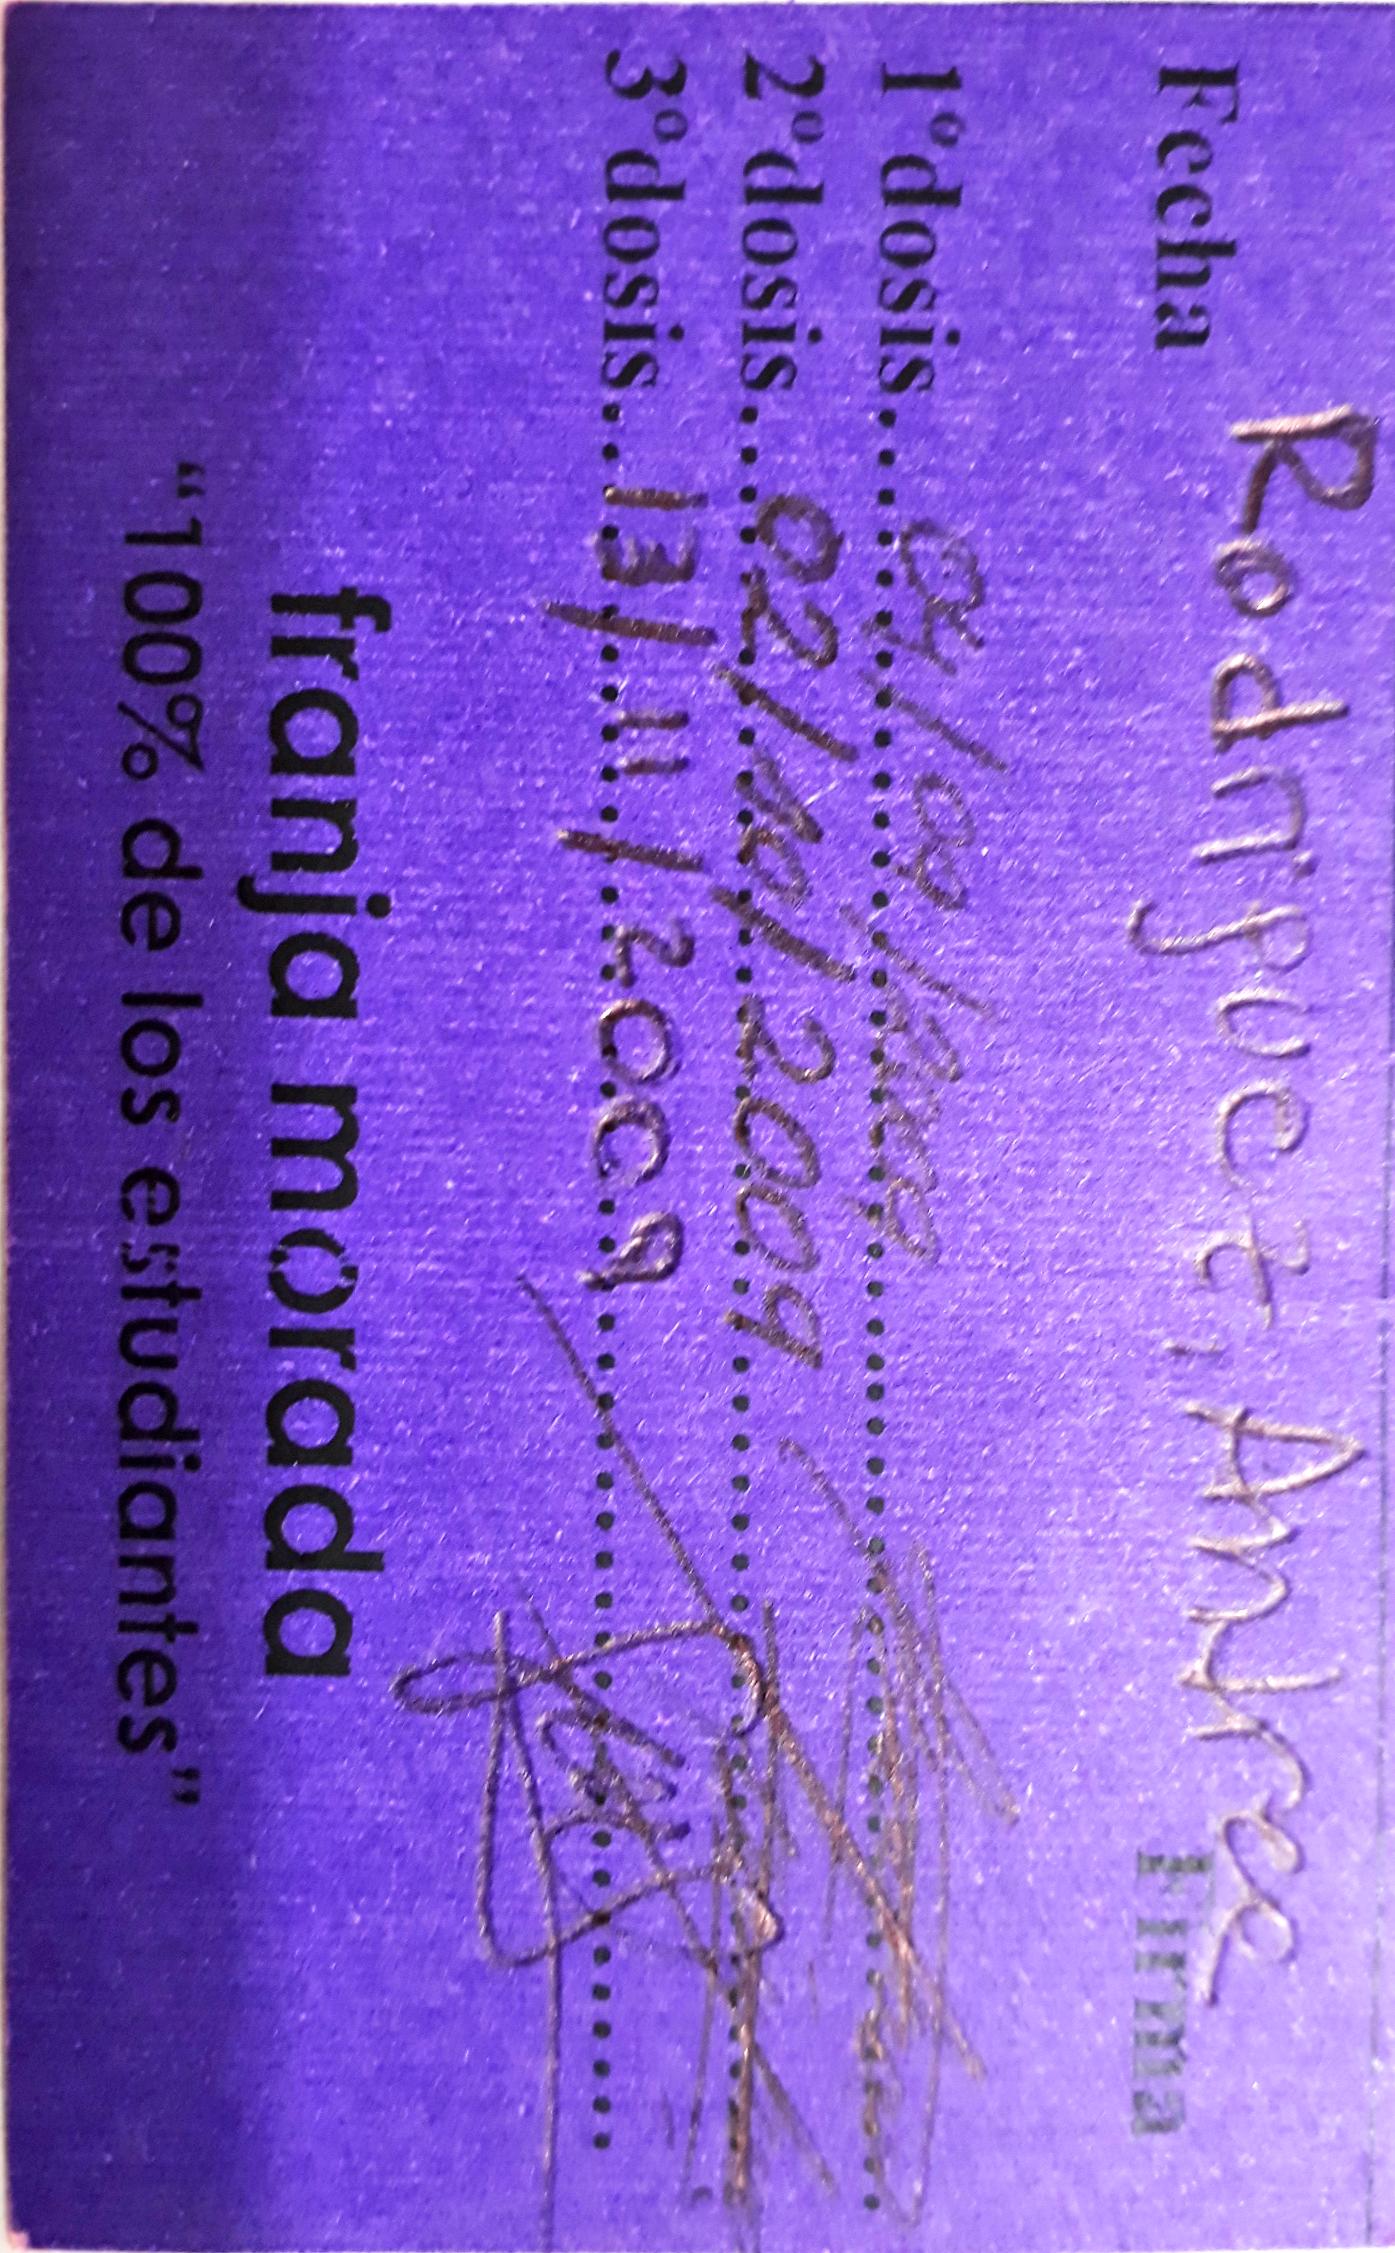 Rodriguez, Andree
Fecha Firma
1ºdosis... 04/09/2009
2ºdosis... 02/10/2009
3ºdosis... 13/11/2009
franja morada
“100% de los estudiantes”